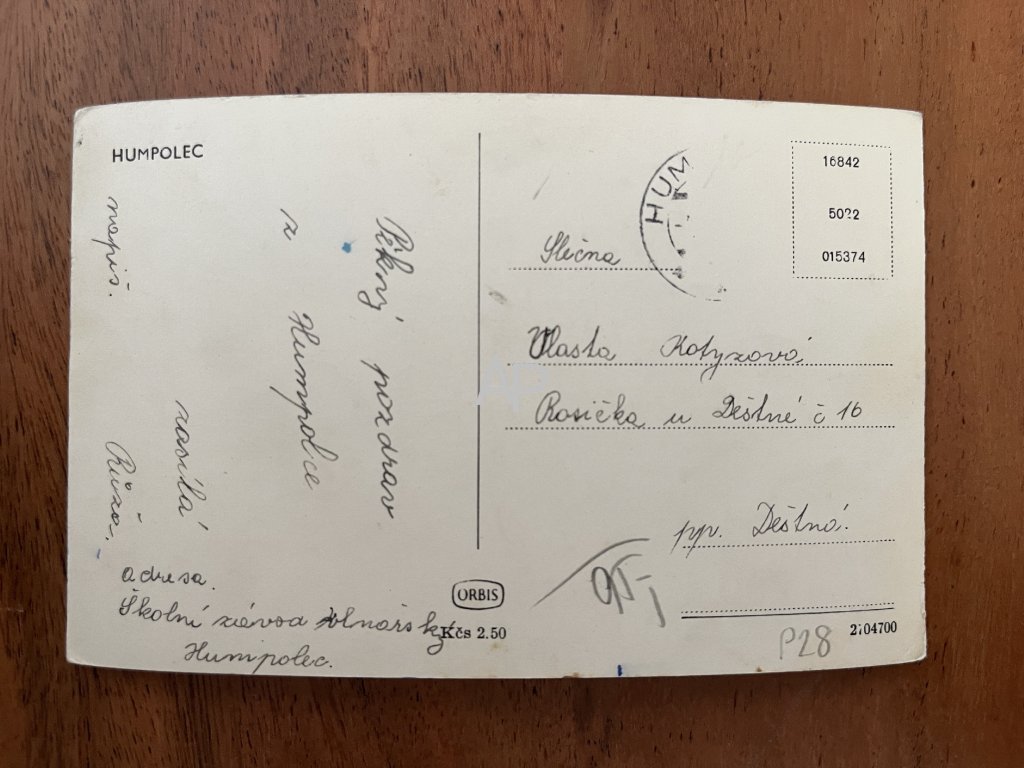 HUMPOLEC
Pěkný pozdrav
z Humpolce
zasílá
Růža.
napiš.
adresa.
Školní závod vlnařský
Humpolec.
ORBIS
Kčs 2.50
HUM
16842
5022
015374
Slečna
Vlasta Kotyzová
Rosička u Deštné č 16
pp. Deštná.
P28
2104700